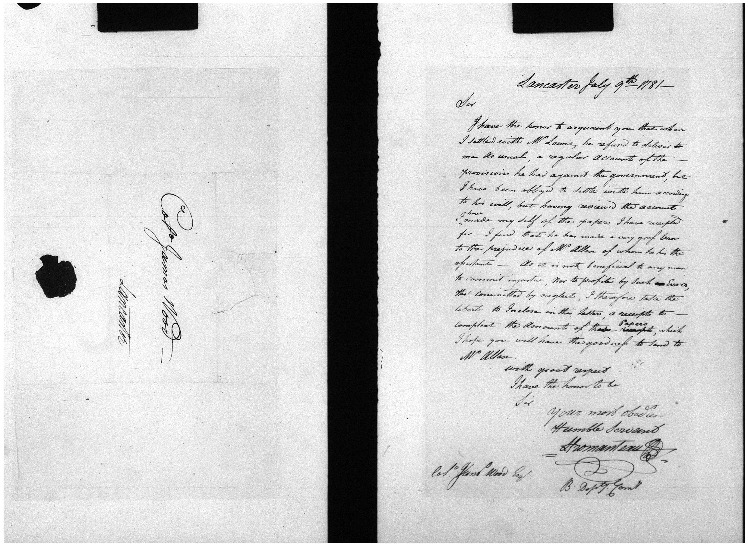 Capt James Wood
Lancaster
Lancaster July 9th 1781
Sir
I have the honor to you that when
I settled with Mr he refused to deliver to
me as usual, a regular accounts of the
provisions he had against the government, but
I have been obliged to settle with him according
to his will, but having received the accounts
& made my self of the papers I have
for I find that he has made a very great Error
to the prejudice of Mr Allen of whom he his the
As it is not beneficial to any man
to commit injustice Nor to profite by such Errors,
tho' committed by neglect, I therefore take the
to Inclose in this letter, a receipte to
compleat the Amounts of Papers which
I hope you will have the goodness to send to
Mr Allen
with great respect
I have the honor to be
Sir
Your most Obedt
Humble Servant
B. Depty
Wood Esqr